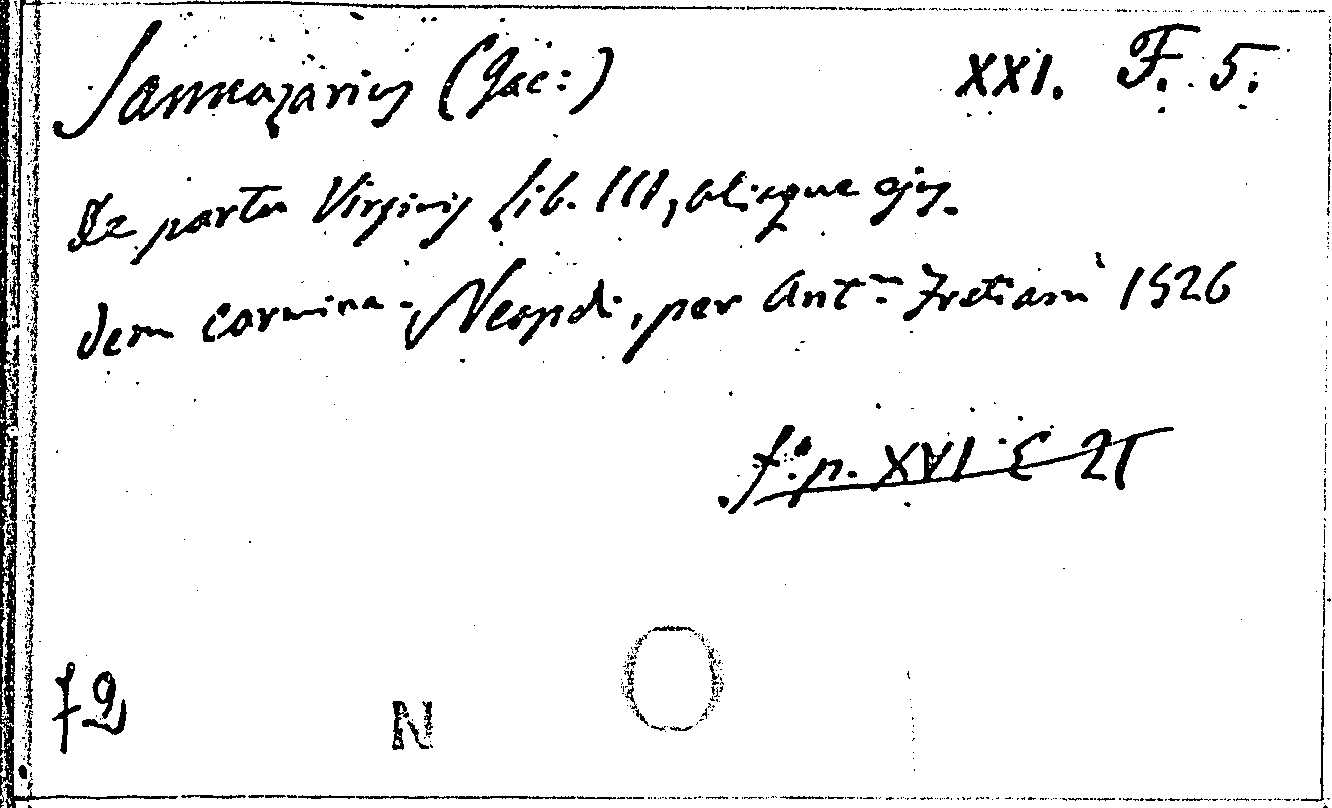 Sannazarius (Jac:) XXI. F. 5.
De partu Virginis Lib. III, aliaque ejus.
dem carmina - Neapoli, per Ant.m Fretiam 1526
f.° p. XVI E 21
72
N